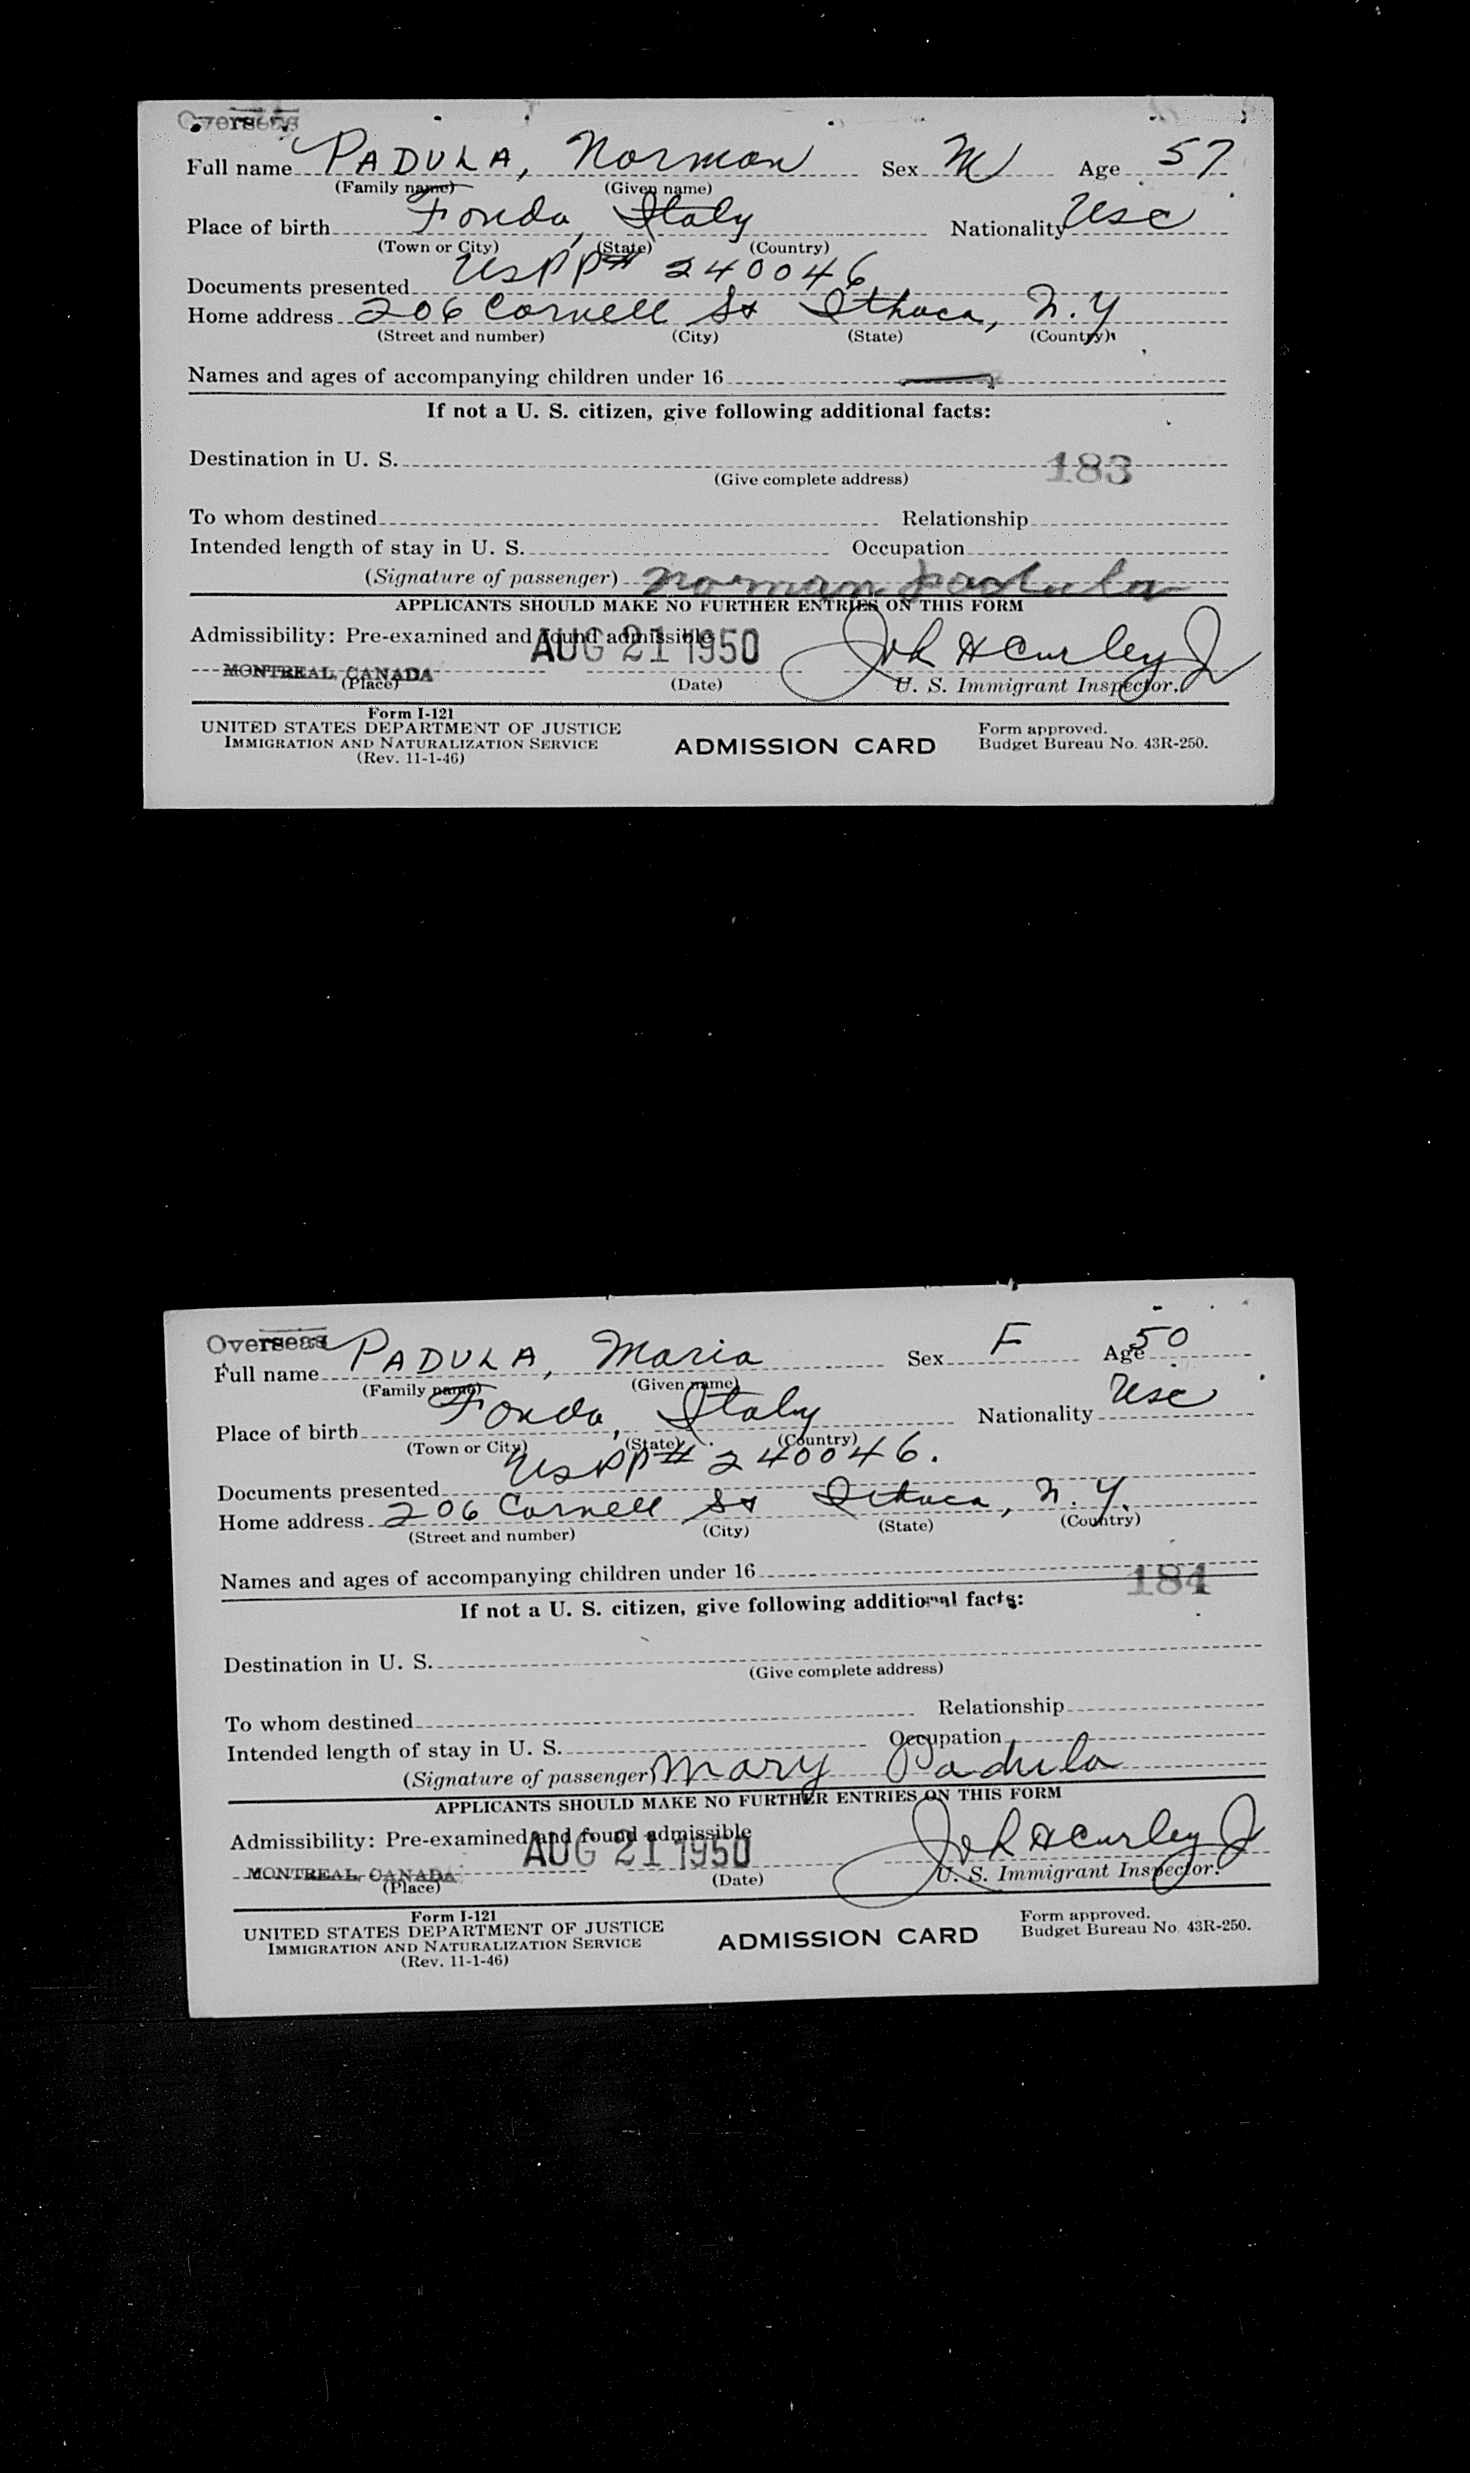 Overseas
Full name PADULA, Norman Sex M Age 57
(Family name) (Given name)
Place of birth Fonda, Italy Nationality USC
(Town or City) (State) (Country)
Documents presented USPP# 240046
Home address 206 Cornell St Ithaca, N.Y
(Street and number) (City) (State) (Country)
Names and ages of accompanying children under 16 —
If not a U. S. citizen, give following additional facts:
Destination in U. S. 183
(Give complete address)
To whom destined Relationship
Intended length of stay in U. S. Occupation
(Signature of passenger) Norman Padula
APPLICANTS SHOULD MAKE NO FURTHER ENTRIES ON THIS FORM
Admissibility: Pre-examined and found admissible
MONTREAL, CANADA AUG 21 1950 Joh H Curley Jr
(Place) (Date) U. S. Immigrant Inspector.
Form I-121
UNITED STATES DEPARTMENT OF JUSTICE
IMMIGRATION AND NATURALIZATION SERVICE
(Rev. 11-1-46)
ADMISSION CARD
Form approved.
Budget Bureau No. 43R-250.
Overseas
Full name PADULA, Maria Sex F Age 50
(Family name) (Given name)
Place of birth Fonda, Italy Nationality USC
(Town or City) (State) (Country)
Documents presented USPP# 240046.
Home address 206 Cornell St Ithaca, N.Y.
(Street and number) (City) (State) (Country)
Names and ages of accompanying children under 16 184
If not a U. S. citizen, give following additional facts:
Destination in U. S.
(Give complete address)
To whom destined Relationship
Intended length of stay in U. S. Occupation
(Signature of passenger) Mary Padula
APPLICANTS SHOULD MAKE NO FURTHER ENTRIES ON THIS FORM
Admissibility: Pre-examined and found admissible
MONTREAL, CANADA AUG 21 1950 Joh H Curley Jr
(Place) (Date) U. S. Immigrant Inspector.
Form I-121
UNITED STATES DEPARTMENT OF JUSTICE
IMMIGRATION AND NATURALIZATION SERVICE
(Rev. 11-1-46)
ADMISSION CARD
Form approved.
Budget Bureau No. 43R-250.